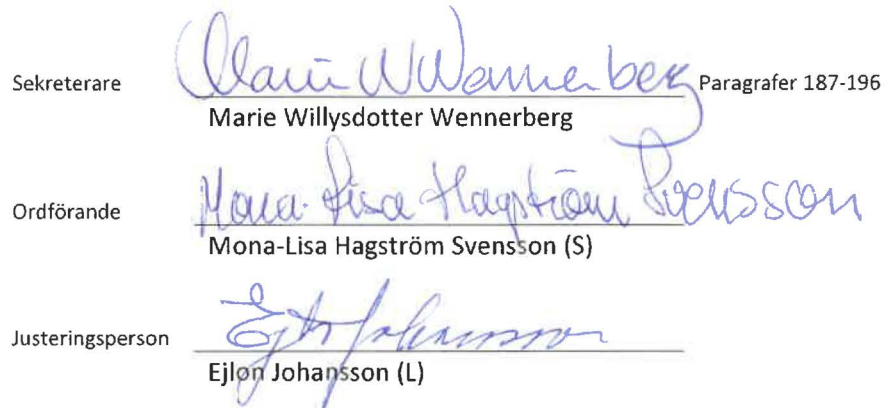 Sekreterare Marie W Wennerberg Paragrafer 187-196
Marie Willysdotter Wennerberg
Ordförande Mona-Lisa Hagström Svensson
Mona-Lisa Hagström Svensson (S)
Justeringsperson Ejlon Johansson
Ejlon Johansson (L)